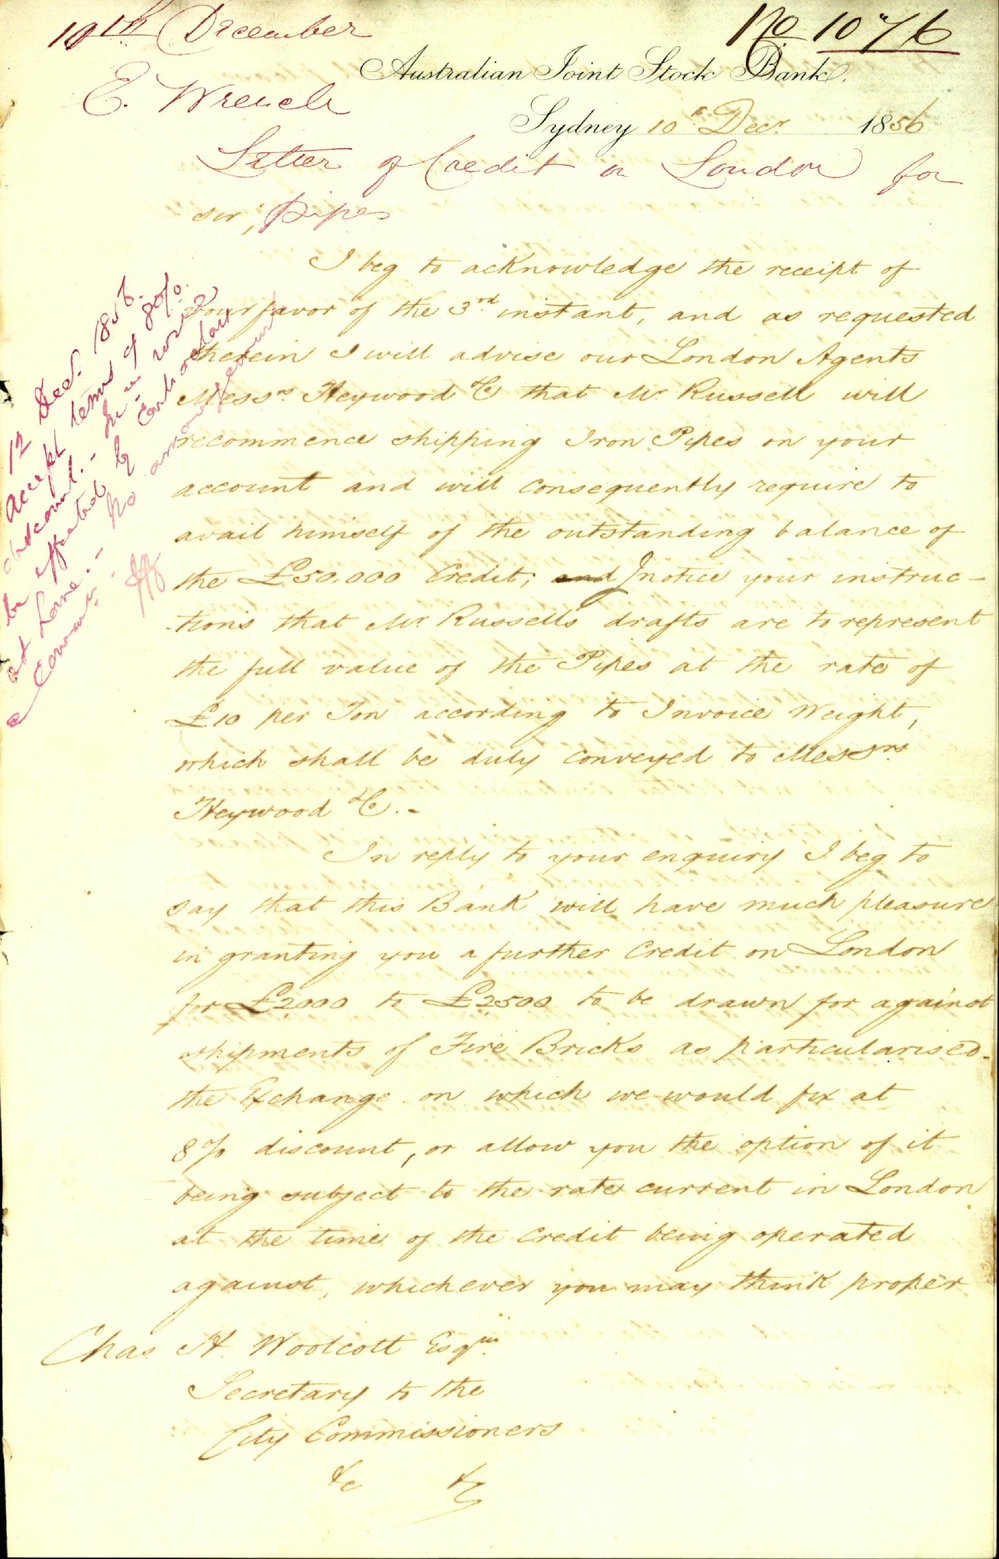 10th December
No 1076
E. Wrench
Australian Joint Stock Bank.
Sydney 10th Decr. 1856
Letter of Credit on London for
Pipes
Sir,
I beg to acknowledge the receipt of
your favor of the 3rd instant, and as requested
therein I will advise our London Agents
Messrs. Heywood & Co that Mr Russell will
recommence shipping Iron Pipes on your
account and will consequently require to
avail himself of the outstanding balance of
the £50,000 Credit; and I notice your instruc-
-tions that Mr Russell's drafts are to represent
the full value of the Pipes at the rate of
£10 per Ton according to Invoice Weight,
which shall be duly conveyed to Messrs
Heywood & Co. -
In reply to your enquiry I beg to
say that this Bank will have much pleasure
in granting you a further Credit on London
for £2000 to £2500 to be drawn for against
shipments of Fire Bricks as particularised -
the Exchange on which we would fix at
8% discount, or allow you the option of it
being subject to the rate current in London
at the time of the Credit being operated
against, whichever you may think proper
Chas H. Woolcott Esqre.
Secretary to the
City Commissioners
&c &c
12 Decr. 1856.
Accept terms of 8 0/0.
discount. -
be effected by Contractor
at home. - No